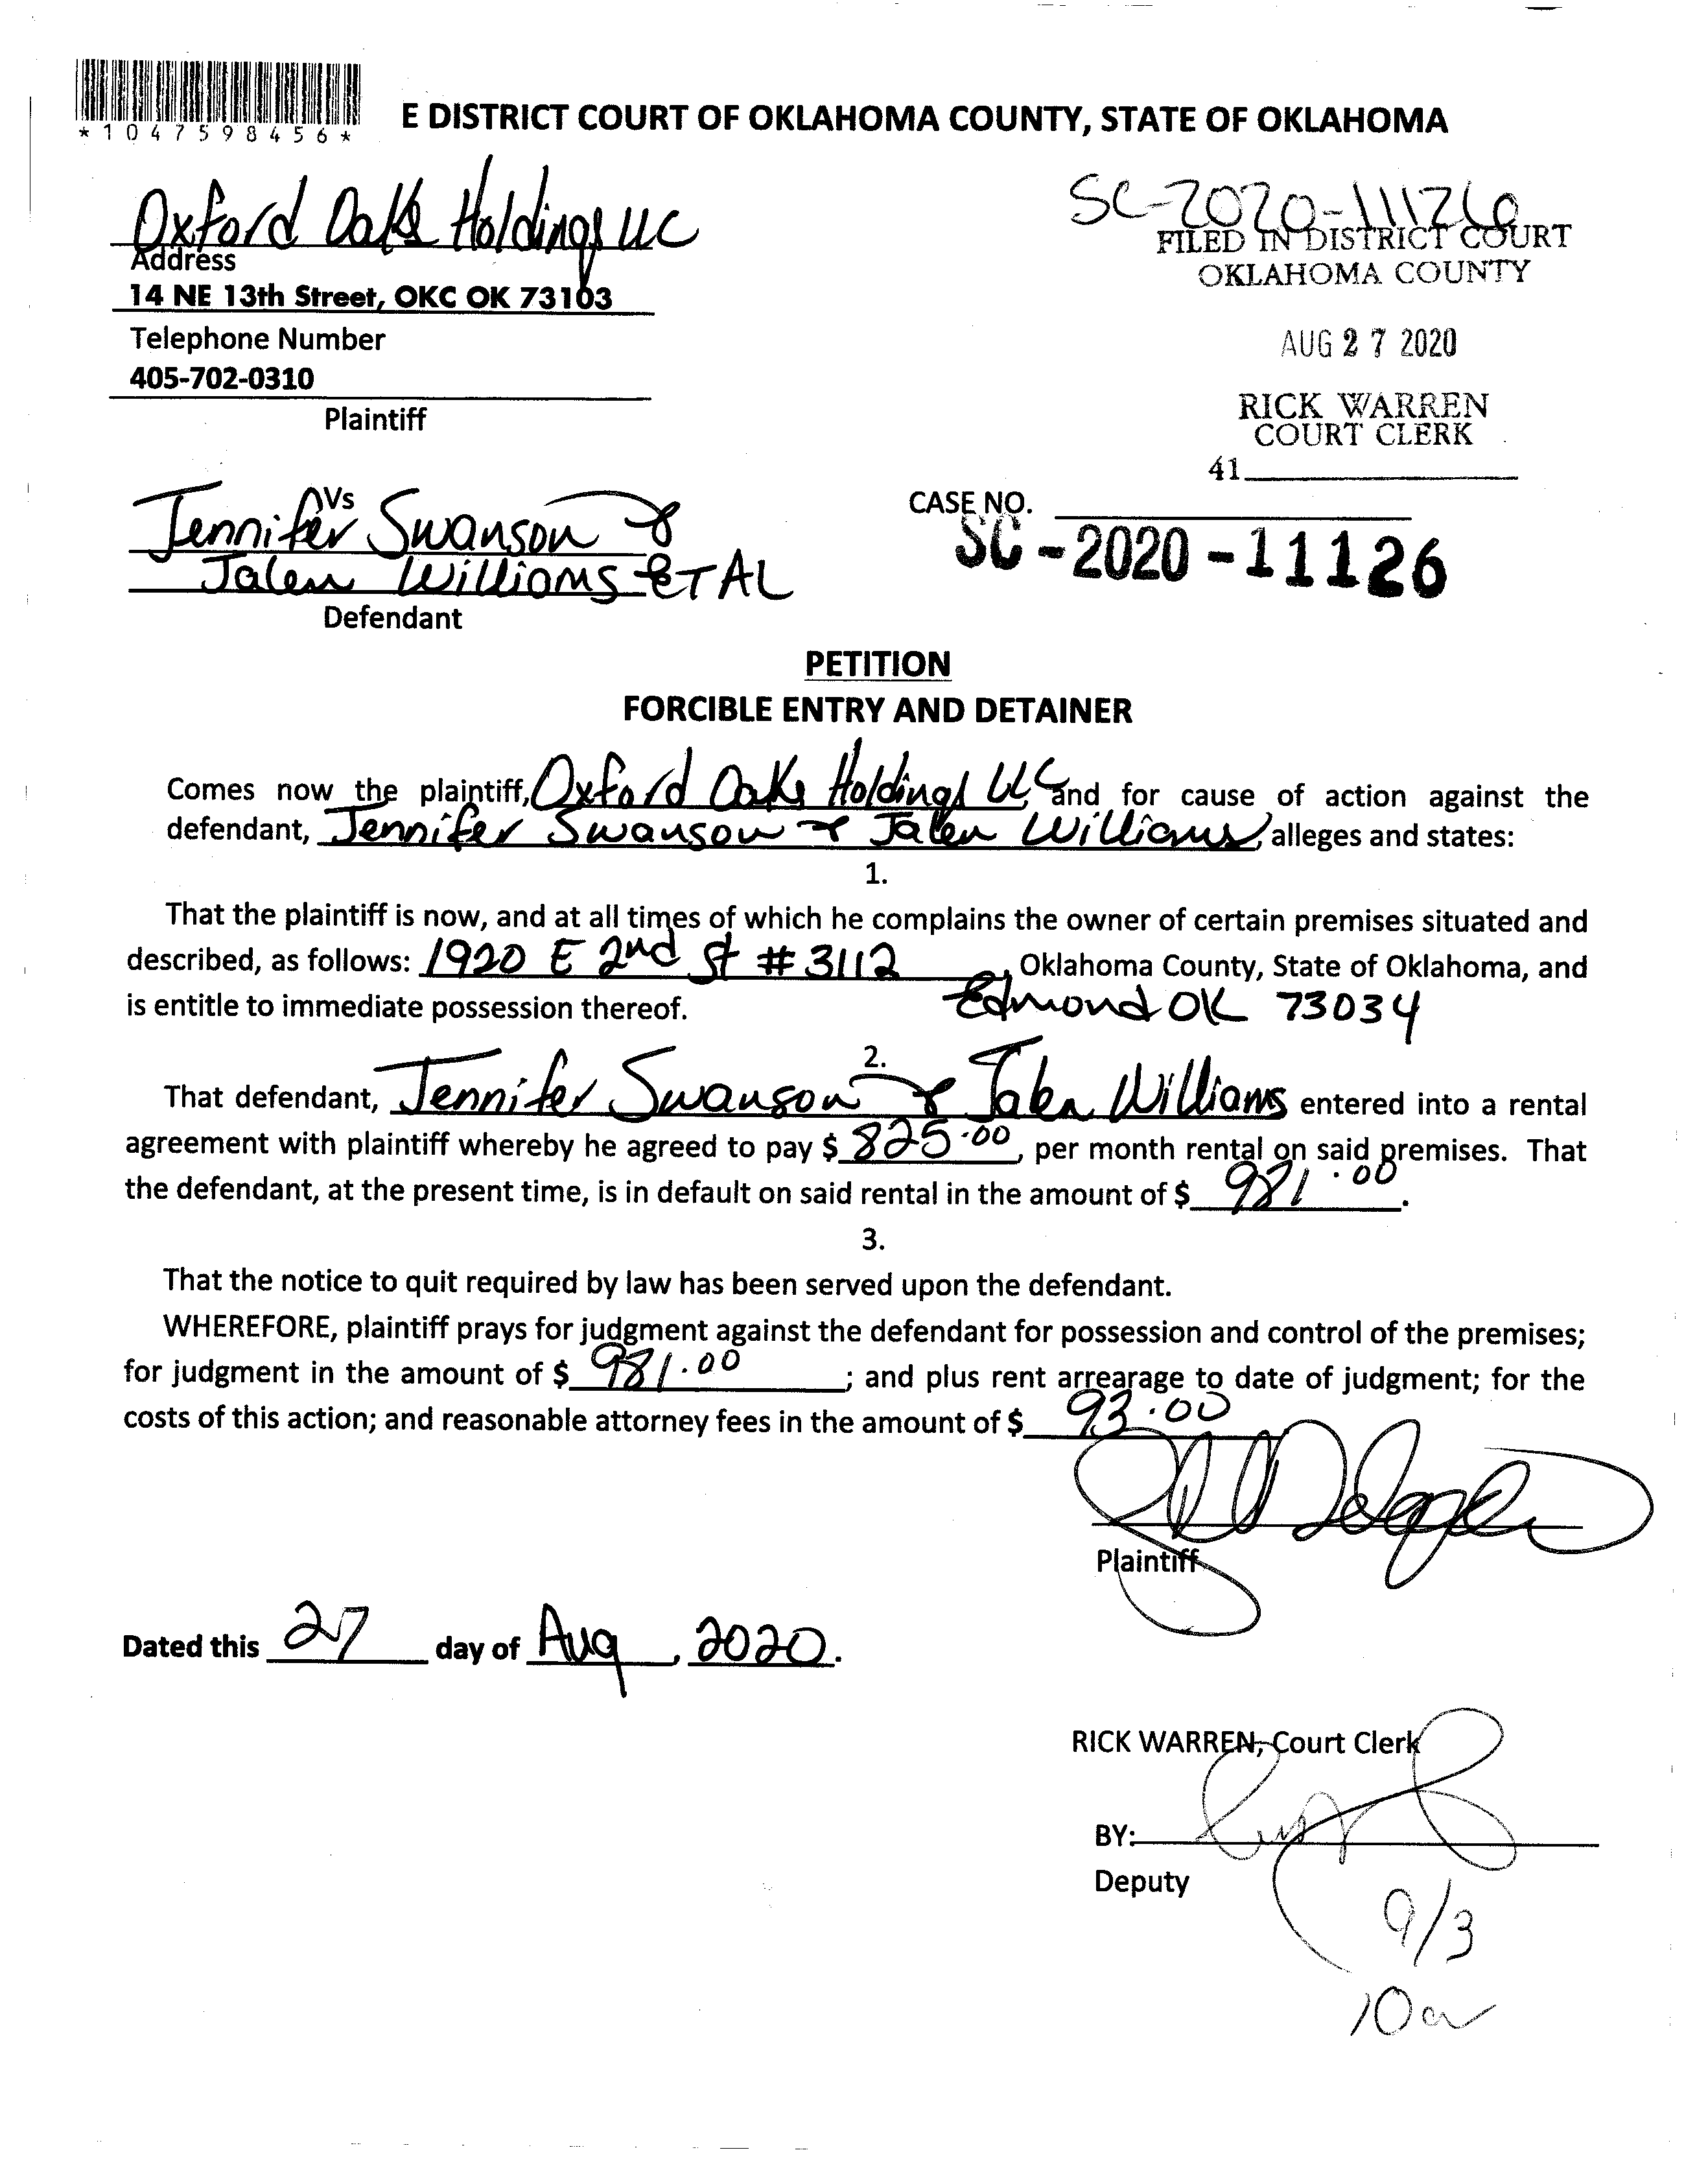 *1047598456*
E DISTRICT COURT OF OKLAHOMA COUNTY, STATE OF OKLAHOMA
Oxford Oaks Holdings LLC
Address
14 NE 13th Street, OKC OK 73103
Telephone Number
405-702-0310
Plaintiff
SC-2020-11126
FILED IN DISTRICT COURT
OKLAHOMA COUNTY
AUG 27 2020
RICK WARREN
COURT CLERK
41
Vs
Jennifer Swanson &
Jalen Williams ET AL
Defendant
CASE NO.
SC-2020-11126
PETITION
FORCIBLE ENTRY AND DETAINER
Comes now the plaintiff, Oxford Oaks Holdings LLC and for cause of action against the
defendant, Jennifer Swanson & Jalen Williams, alleges and states:
1.
That the plaintiff is now, and at all times of which he complains the owner of certain premises situated and
described, as follows: 1920 E 2nd St # 3112, Oklahoma County, State of Oklahoma, and
is entitle to immediate possession thereof. Edmond OK 73034
2.
That defendant, Jennifer Swanson & Jalen Williams entered into a rental
agreement with plaintiff whereby he agreed to pay $ 825.00, per month rental on said premises. That
the defendant, at the present time, is in default on said rental in the amount of $ 981.00.
3.
That the notice to quit required by law has been served upon the defendant.
WHEREFORE, plaintiff prays for judgment against the defendant for possession and control of the premises;
for judgment in the amount of $ 981.00; and plus rent arrearage to date of judgment; for the
costs of this action; and reasonable attorney fees in the amount of $ 93.00
Plaintiff
Dated this 27 day of Aug, 2020.
RICK WARREN, Court Clerk
BY:
Deputy
9/3
10a